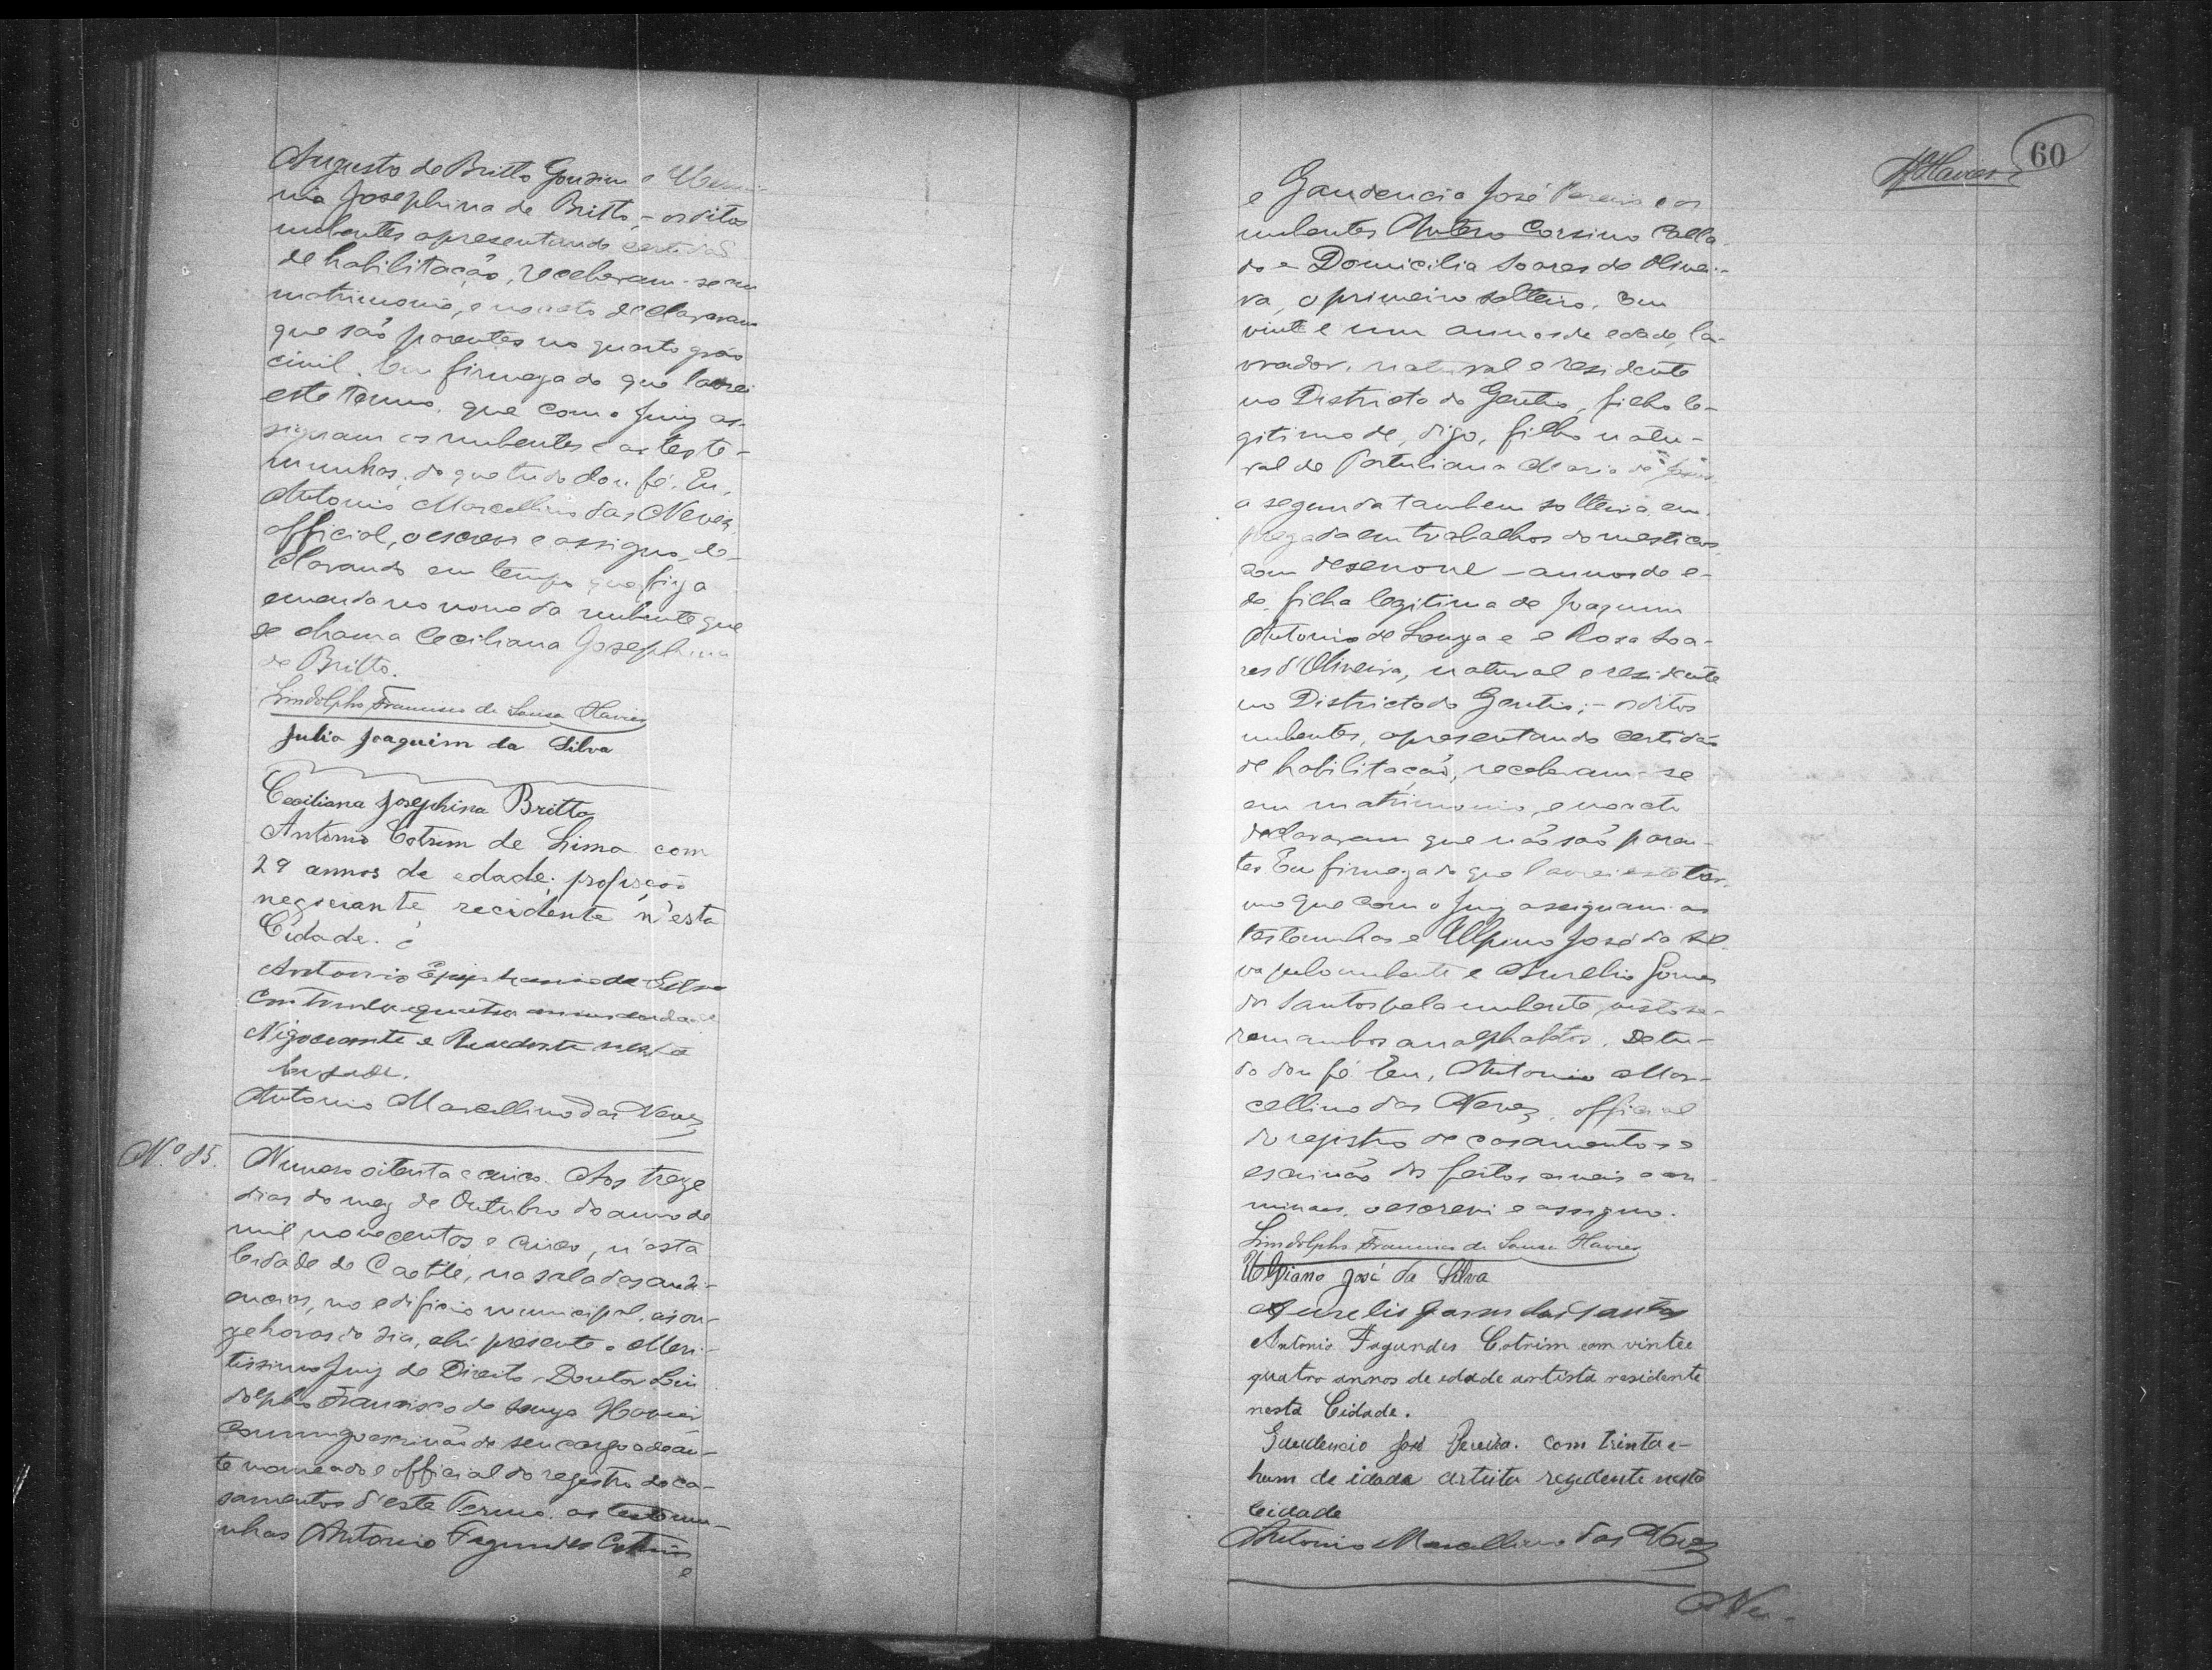 Augusto de Britto Gondim e
nia Josephina de Britto, – os ditos
nubentes apresentando certidão
de habilitação, receberam-se em
matrimonio, e no acto declararam
que são parentes no quarto gráo
civil. Em firmeza do que lavrei
este termo, que com o Juiz as-
signam os nubentes e as teste-
munhas, do que tudo dou fé. Eu,
Antonio Marcellino das Neves,
official, o escrevi e assigno, de-
clarando em tempo que fiz a
emenda no nome da nubente que
se chama Ceciliana Josephina
de Britto.
Lindolpho Francisco de Sousa Havier
Julio Joaquim da Silva
Ceciliana Josephina Britto
Antonio Cotrim de Lima com
29 annos de edade; profisção
negociante recidente n'esta
Cidade. é
Antonio Epiphanio da Silva
com trinta quatro annos de edade
Nigociante e Residente nesta
Cidade.
Antonio Marcellino das Neves
Nº 85.
Numero oitenta e cinco. Aos treze
dias do mez de Outubro do anno de
mil novecentos e cinco, n'esta
Cidade de Caetité, na sala das audi-
encias, no edificio municipal, ás on-
ze horas do dia, ahi presente o Meri-
tissimo Juiz de Direito, Doutor Lin
dolpho Francisco de Souza Havier
commigo escrivão de seu cargo adean-
te nomeado e official do registro de ca-
samentos d'este Termo, as testemu-
nhas Antonio Fagundes Cotrim
e
Havier
60
e Gaudencio José Pereira e os
nubentes Antero Corsino Calla-
do e Domicilia Soares de Olivei-
ra, o primeiro solteiro, com
vinte e um annos de edade, la-
vrador, natural e residente
no Districto do Gentio, filho le-
gitimo de, digo, filho natu-
ral de Portuliana Maria de Jesus
a segunda tambem solteira, em-
pregada em trabalhos domesticos,
com desenove – annos de e-
de, filha legitima de Joaquim
Antonio de Souza e e Rosa Soa-
res d'Oliveira, natural e residente
no Districto do Gentio; – os ditos
nubentes, apresentando certidão
de habilitação, receberam-se
em matrimonio, e no acto
declararam que não são paren-
tes Em firmeza do que lavrei este ter-
mo que com o Juiz assignam as
testemunhas e Ulpiano José da Sil-
va pelo nubente e Aurelio Gomes
dos Santos pela nubente, visto se-
rem ambos analphabetos. De tu-
do dou fé. Eu, Antonio Mar-
cellino das Neves, official
do registro de casamentos e
escrivão dos feitos civeis e cri-
minaes, o escrevi e assigno.
Lindolpho Francisco de Sousa Havier
Ulpiano José da Silva
Aurelio Gomes dos Santos
Antonio Fagundes Cotrim com vinte e
quatro annos de edade artista residente
nesta Cidade.
Gaudencio José Pereira. com trinta e-
hum de idade artista rezedente nesta
Cidade
Antonio Marcellino das Neves
Nu-